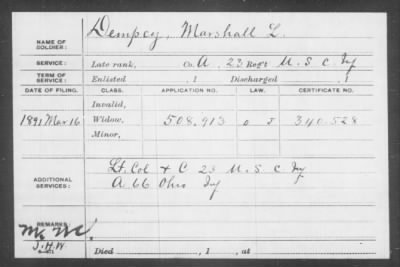 NAME OF SOLDIER: Dempcy, Marshall L.
SERVICE: Late rank, Co. A, 23 Regt U. S. C. Inf
TERM OF SERVICE: Enlisted , 1 Discharged , 1
DATE OF FILING. CLASS. APPLICATION NO. LAW. CERTIFICATE NO.
Invalid,
1891 Mar 16 Widow, 508.913 340.528
Minor,
ADDITIONAL SERVICES: Lt. Col + C 23 U. S. C Inf
A 66 Ohio Inf
REMARKS:
J.H.W.
Died , 1 , at